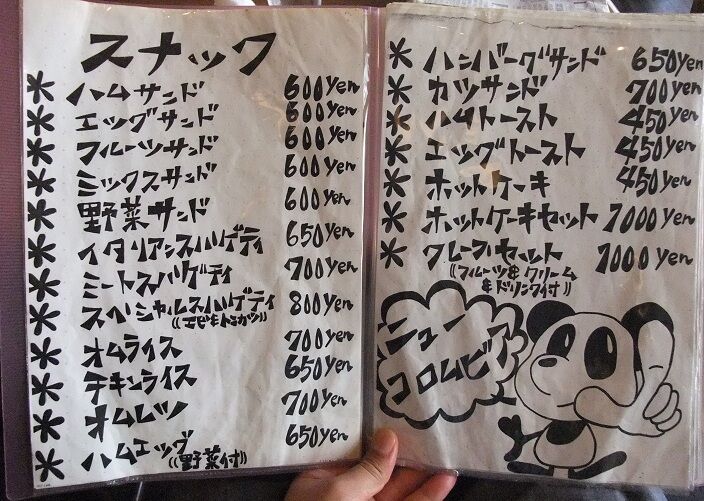 スナック
* ハムサンド 600yen
* エッグサンド 600yen
* フルーツサンド 600yen
* ミックスサンド 600yen
* 野菜サンド 600yen
* イタリアンスパゲティ 650yen
* ミートスパゲティ 700yen
* スペシャルスパゲティ 800yen
((エビ&トンカツ))
* オムライス 700yen
* チキンライス 650yen
* オムレツ 700yen
* ハムエッグ 650yen
((野菜付))
* ハンバーグサンド 650yen
* カツサンド 700yen
* ハムトースト 450yen
* エッグトースト 450yen
* ホットケーキ 450yen
* ホットケーキセット 1000yen
* クレープセット 1000yen
((フルーツ&クリーム
&ドリンク付))
ニュー
コロムビア